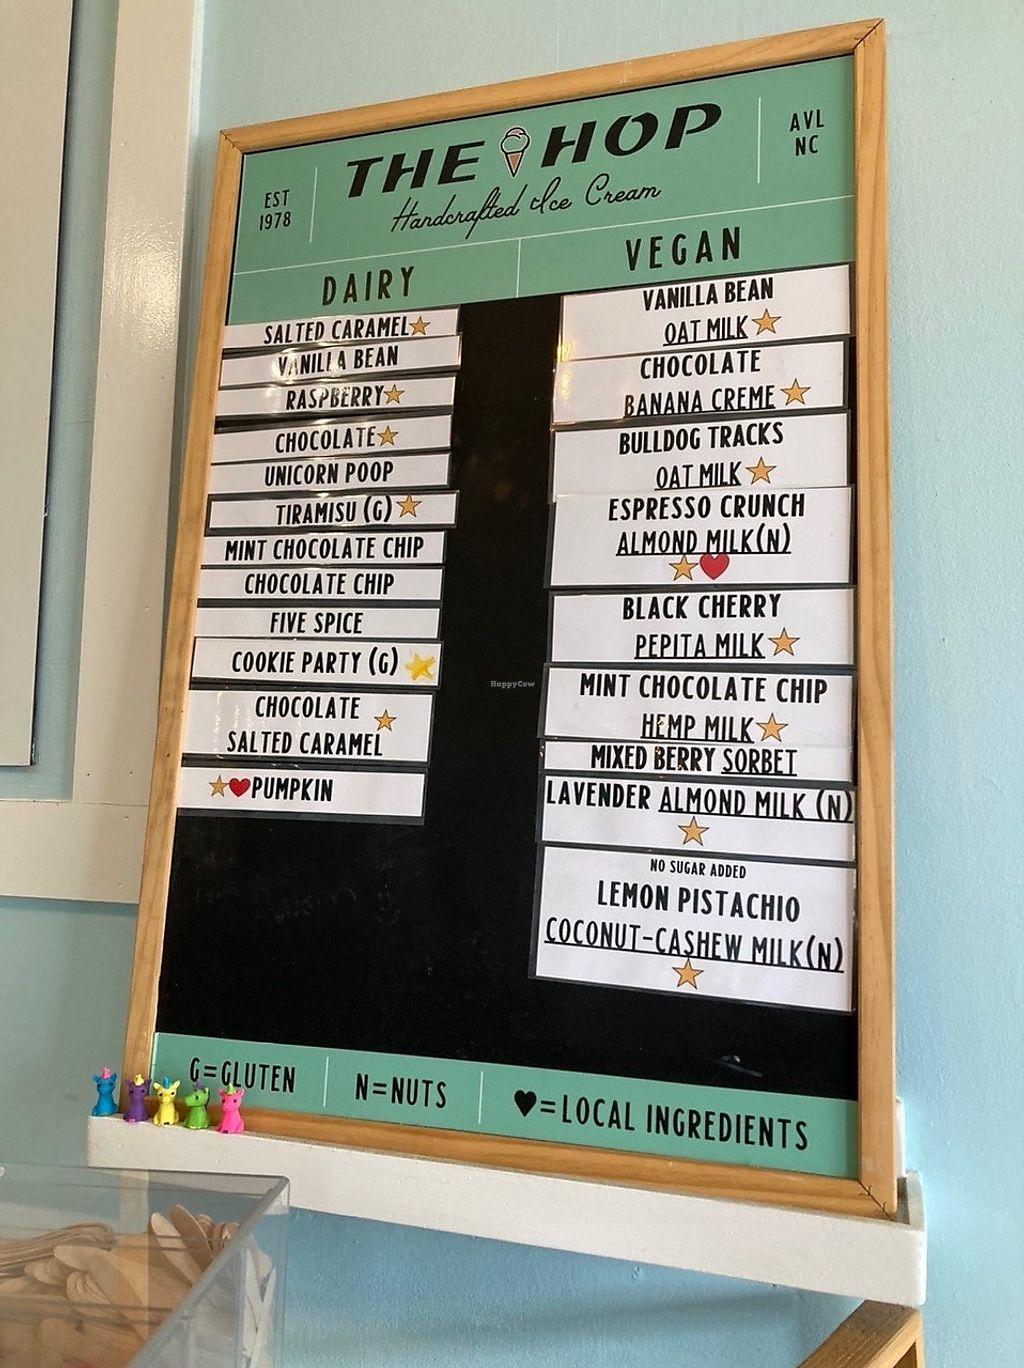 EST
1978
THE HOP
Handcrafted Ice Cream
AVL
NC
DAIRY
SALTED CARAMEL
VANILLA BEAN
RASPBERRY
CHOCOLATE
UNICORN POOP
TIRAMISU (G)
MINT CHOCOLATE CHIP
CHOCOLATE CHIP
FIVE SPICE
COOKIE PARTY (G)
CHOCOLATE
SALTED CARAMEL
PUMPKIN
VEGAN
VANILLA BEAN
OAT MILK
CHOCOLATE
BANANA CREME
BULLDOG TRACKS
OAT MILK
ESPRESSO CRUNCH
ALMOND MILK(N)
BLACK CHERRY
PEPITA MILK
MINT CHOCOLATE CHIP
HEMP MILK
MIXED BERRY SORBET
LAVENDER ALMOND MILK (N)
NO SUGAR ADDED
LEMON PISTACHIO
COCONUT-CASHEW MILK(N)
HappyCow
G=GLUTEN
N=NUTS
♥=LOCAL INGREDIENTS